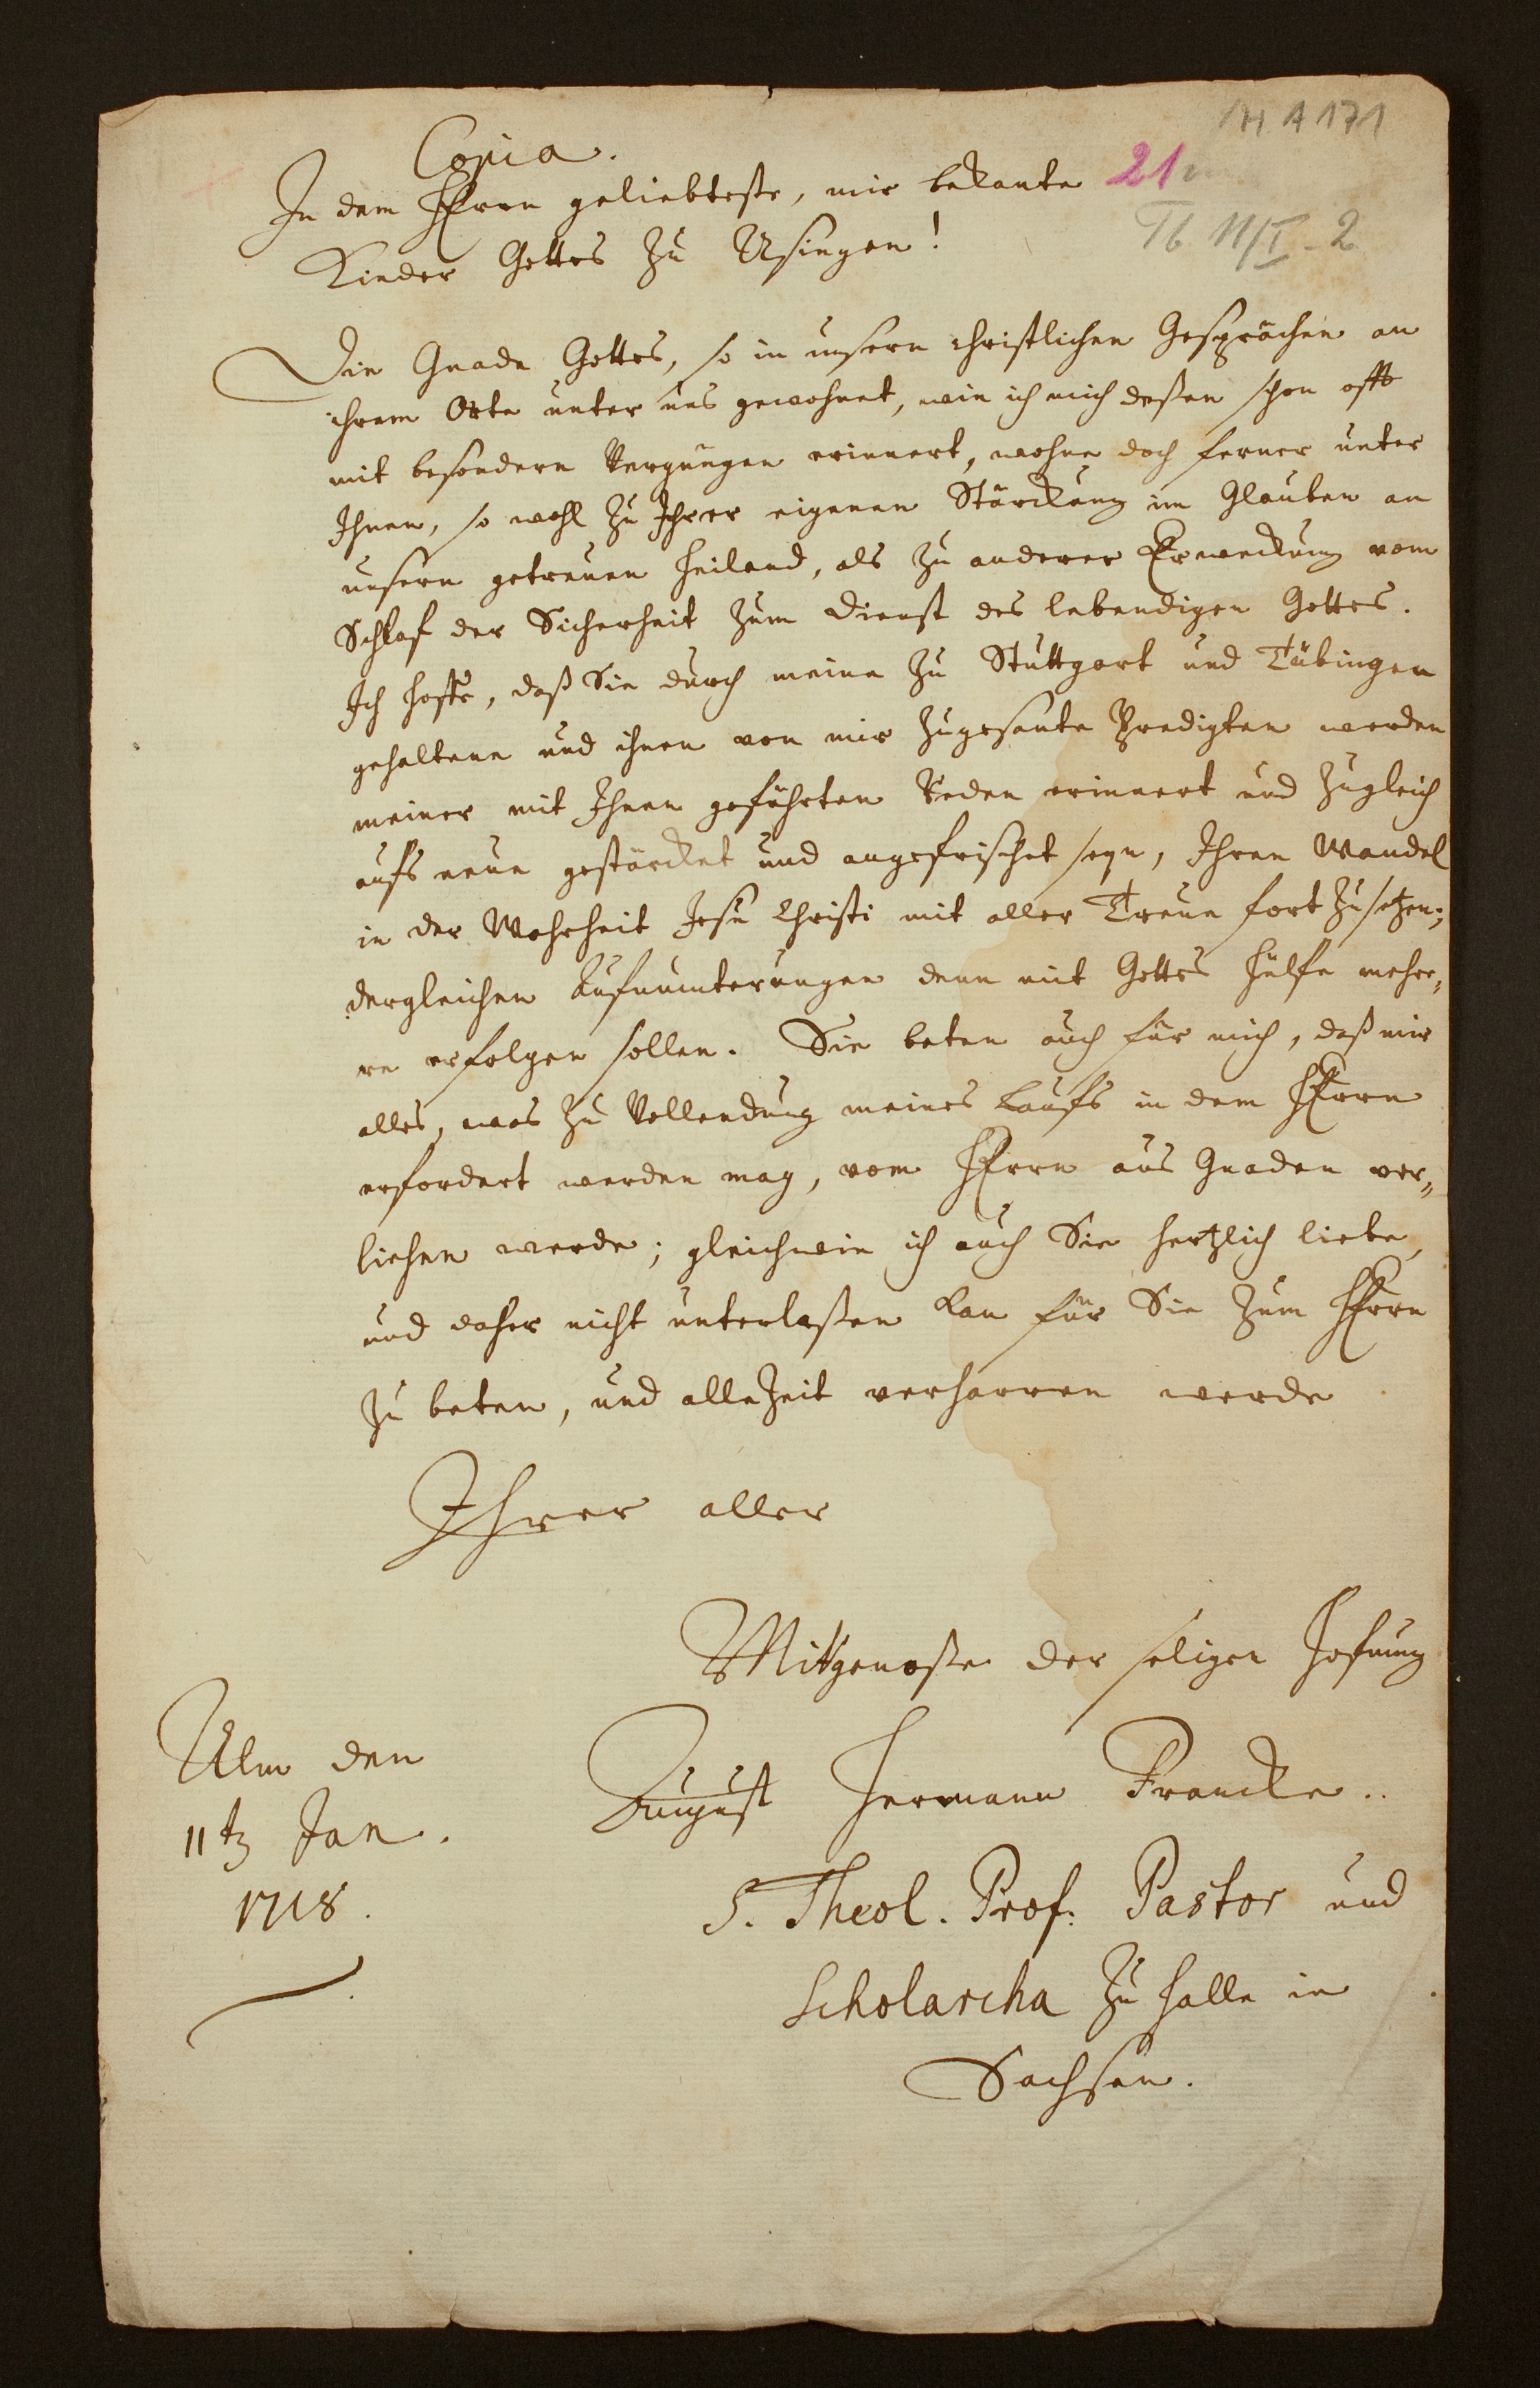 H A 171
Copia.
21
In dem HErrn geliebteste, mir bekante
Tb 11/I-2
Kinder Gottes zu Usingen!
Die Gnade Gottes, so in unsern christlichen Gesprächen an
ihrem Orte unter uns gewohnet, wie ich mich deßen schon offt
mit besondern Vergnügen erinnert, wohne doch ferner unter
Ihnen, so wohl zu Ihrer eigenen Stärckung im Glauben an
unsern getreuen Heiland, als zu anderer Erweckung vom
Schlaf der Sicherheit zum Dienst des lebendigen Gottes.
Ich hoffe, daß Sie durch meine zu Stuttgart und Tübingen
gehaltene und ihnen von mir zugesante Predigten werden
meiner mit Ihnen geführten Reden erinnert und zugleich
aufs neue gestärcket und angefrischet seyn, Ihren Wandel
in der Wahrheit Jesu Christi mit aller Treue fort zu setzen;
dergleichen Aufmunterungen denn mit Gottes Hülfe mehre„
re erfolgen sollen. Sie beten auch für mich, daß mir
alles, was zu Vollendung meines Laufs in dem HErrn
erfordert werden mag, vom HErrn aus Gnaden ver„
liehen werde; gleichwie ich auch Sie hertzlich liebe,
und daher nicht unterlaßen kan für Sie zum HErrn
zu beten, und alle Zeit verharren werde
Ihrer aller
Mitgenoße der seligen Hofnung
Ulm den
August Hermann Francke..
11 tz Jan.
S. Theol. Prof. Pastor und
1718.
Scholarcha zu Halle in
Sachsen.